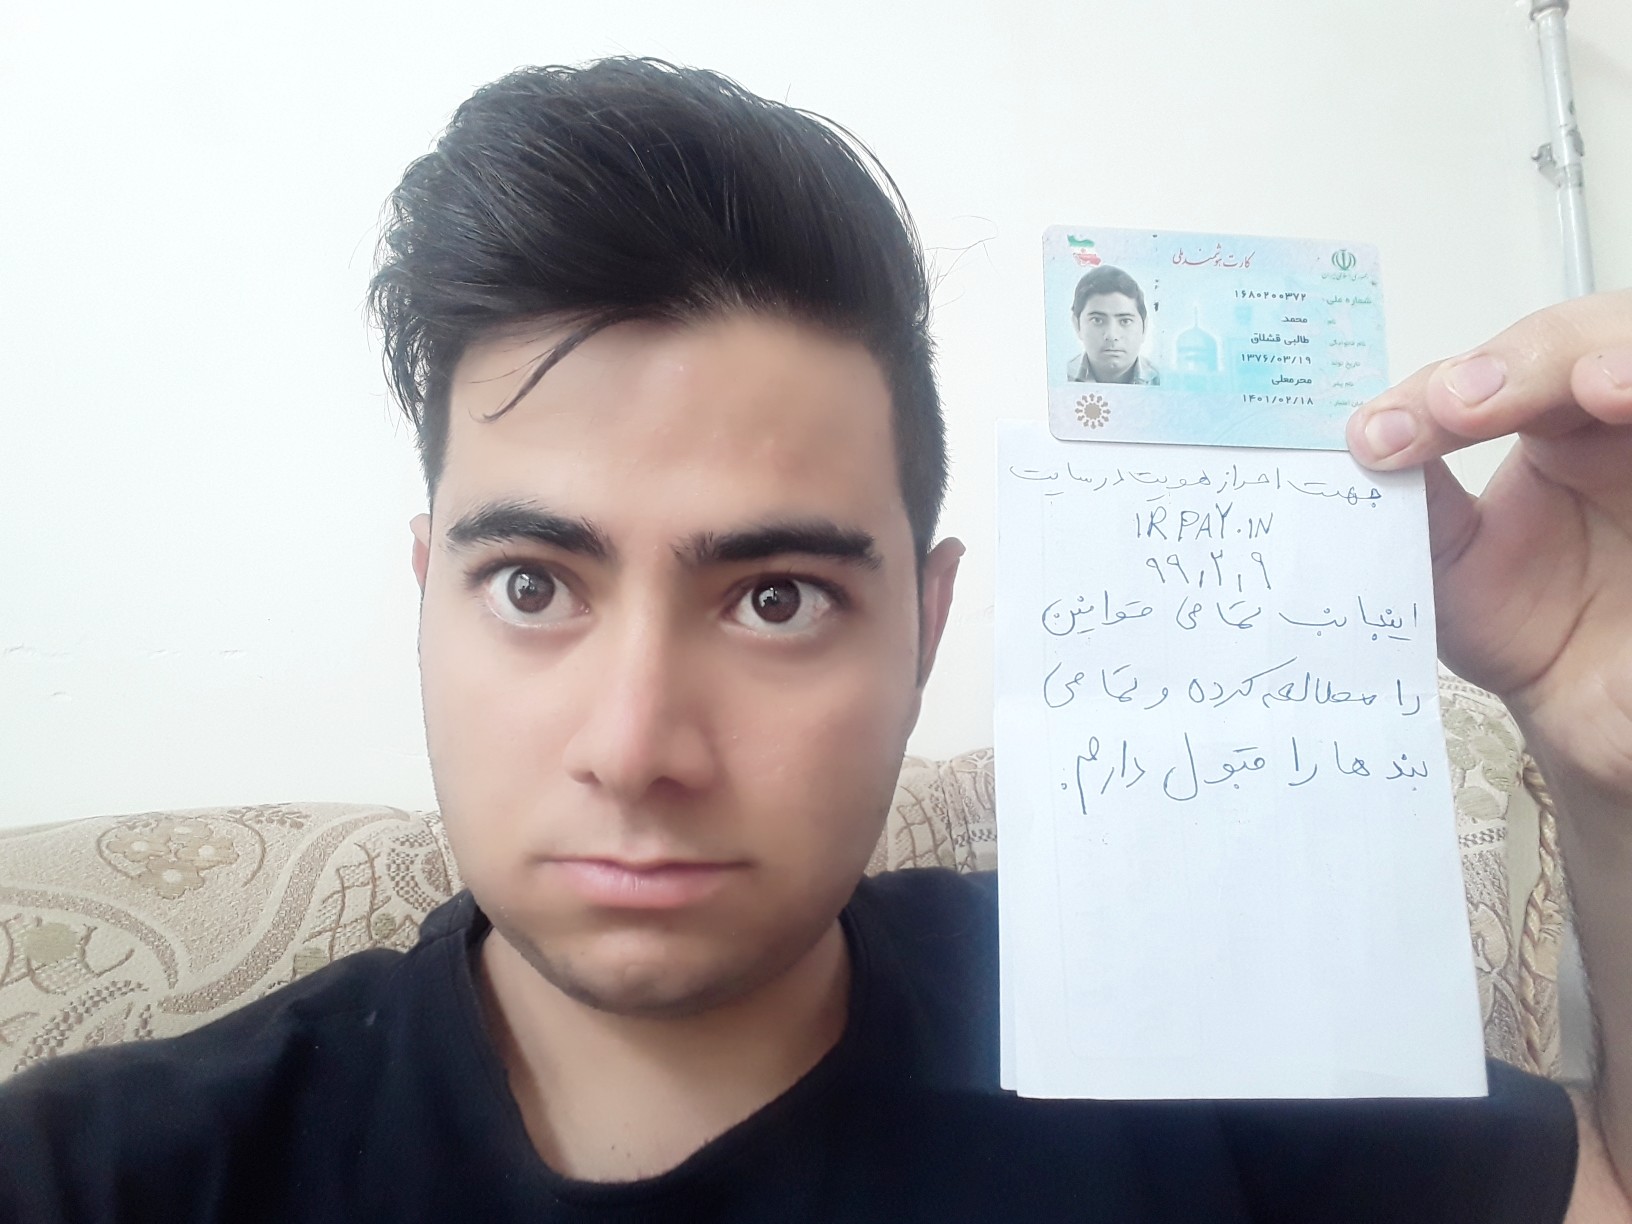 کارت هوشمند ملی
جمهوری اسلامی ایران
شماره ملی: ۱۶۸۰۲۰۰۳۷۲
نام: محمد
نام خانوادگی: طالبی قشلاق
تاریخ تولد: ۱۳۷۶/۰۳/۱۹
نام پدر: محرمعلی
پایان اعتبار: ۱۴۰۱/۰۲/۱۸
جهت احراز هویت در سایت
IRPAY.IN
۹۹/۲/۹
اینجانب تمامی قوانین
را مطالعه کرده و تمامی
بند ها را قبول دارم.